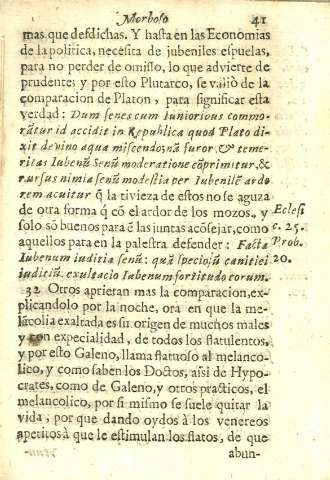 Morboso 41
mas que desdichas. Y hasta en las Economias
de la politica, necesita de jubeniles espuelas,
para no perder de omisso, lo que advierte de
prudente; y por esto Plutarco, se valiò de la
comparacion de Platon, para significar esta
verdad: Dum senes cum Iunioribus commo-
rãtur id accidit in Republica quod Plato di-
xit de vino aqua miscendo; nã furor & teme-
ritas Iubenũ Senũ moderatione cõprimitur, &
rursus nimia senũ modestia per Iubenilẽ ardo
rem acuitur q̃ la tivieza de estos no se aguza
de otra forma q̃ cõ el ardor de los mozos, y
solo sõ buenos para ẽ las juntas acõsejar, como
aquellos para en la palestra defender: Facta
Iubenum iuditia senũ: quã speciosũ canitiei
iuditiũ. exultacio Iubenum fortitudo eorum.
Eclesi
c. 25.
Prob.
20.
32 Otros aprietan mas la comparacion, ex-
plicandolo por la noche, ora en que la me-
lãcolia exaltada es su origen de muchos males
y con expecialidad, de todos los flatulentos,
y por esto Galeno, llama flatuoso al melanco-
lico, y como saben los Doctos, assi de Hypo-
crates, como de Galeno, y otros practicos, el
melancolico, por si mismo se suele quitar la
vida, por que dando oydos à los venereos
apetitos à que le estimulan los flatos, de que
abun-